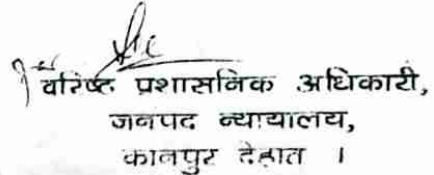 वरिष्ठ प्रशासनिक अधिकारी,
जनपद न्यायालय,
कानपुर देहात ।